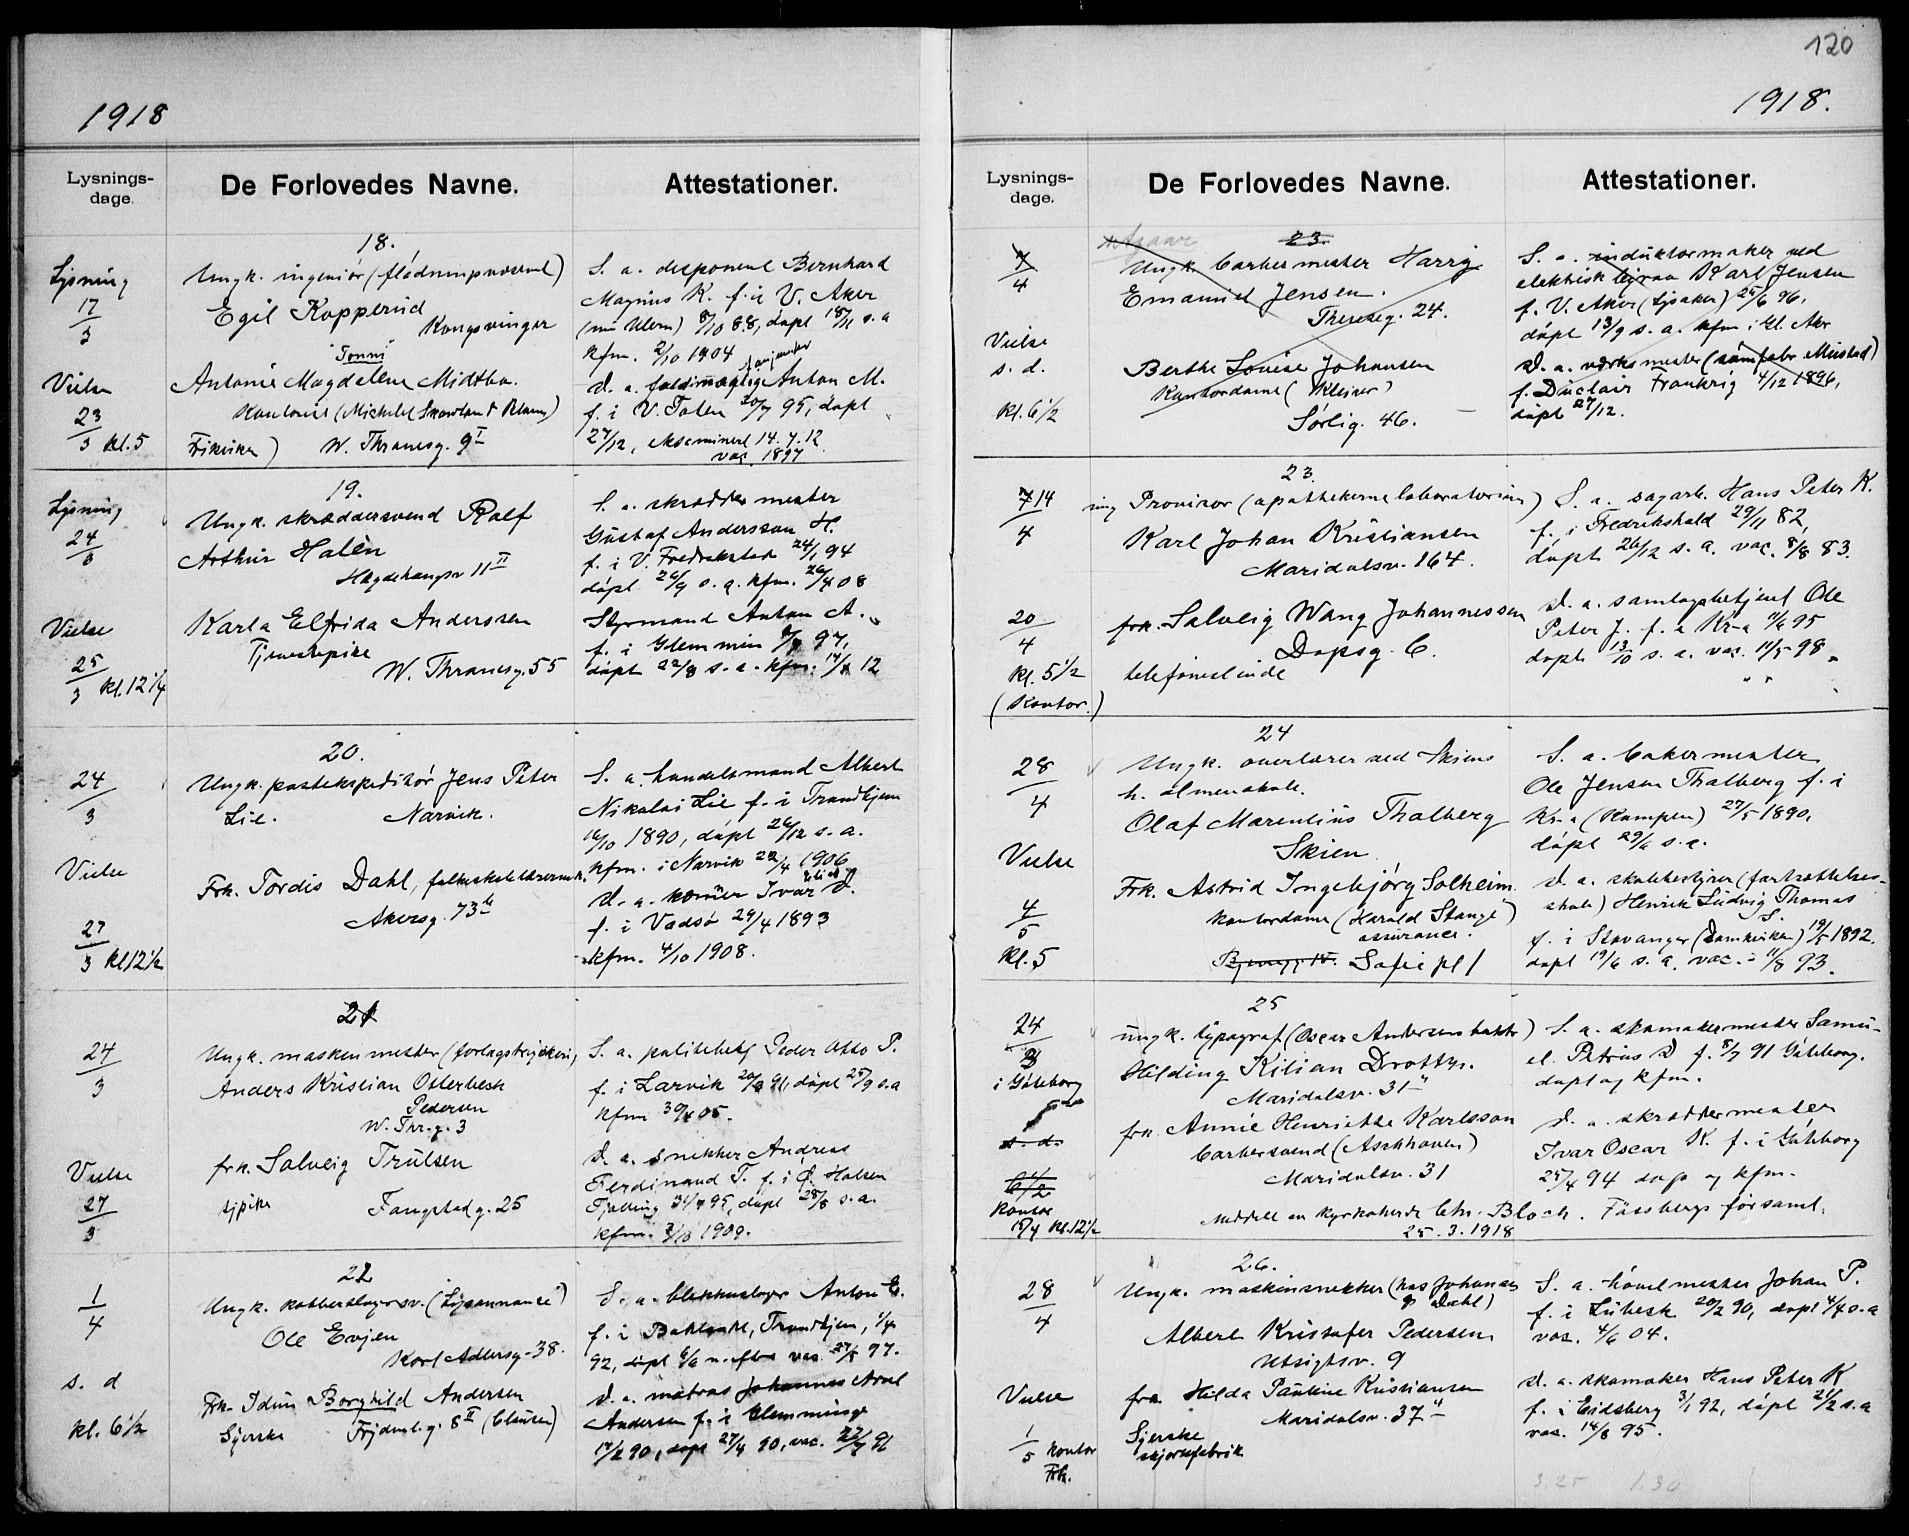 120
1918
1918.
Lysnings-
dage.
De Forlovedes Navne.
Attestationer.
18.
Lysning
17/3
Vielse
23/3 kl. 5
Ungk. ingeniør
Egil Kopperud
Kongsvinger
"Tonni"
Antonie Magdalene Midtbø.
W. Thranesg. 9 I
S. a. disponent Bernhard
Magnus K. f. i V. Aker
8/10 88, døpt 18/11 s. a
kfm. 2/10 1904
Anton M.
f. i V. Toten 20/7 95, døpt
27/12, eksaminert 14.7.12
vac. 1897
19.
Lysning
24/3
Vielse
25/3 kl. 12 1/4
Ungk. skræddersvend Ralf
Arthur Halèn
11 II
Karla Elfrida Anderssen
Tjenestepike
W. Thranesg. 55
S. a. skrædder mester
Gustaf Andersson H.
f. i V. Fredrikstad 24/1 94
døpt s. a. kfm. 08
Styrmand Anton A.
f. i Glemmin 97,
døpt 22/8 s. a. kfm. 12
20.
24/3
Vielse
27/3 kl 12 1/2
Ungk. postekspeditør Jens Peter
Lie. Narvik.
Frk. Tordis Dahl,
Akersg. 73 b
S. a. handelsmand Albert
Nikolai Lie f. i Trondhjem
16/10 1890, døpt 26/12 s. a.
kfm. i Narvik 22/4 1906
D. a. Ivar D.
f. i Vadsø 29/4 1893
kfm. 4/10 1908.
21
24/3
Vielse
27/3
Ungk. maskinmester
Anders Kristian Otterbech
Pedersen
W. Thr.g. 3
frk. Solveig Trulsen
tjpike Fougstad g. 25
S. a. politibetj Peder Otto P.
f. i Larvik 91, døpt s. a
kfm 05.
D. a. snekker Andreas
Ferdinand T. f. i Ø. Halsen
Tjølling 95, døpt 28/8 s. a.
kfm. 1909.
22
1/4
s. d
kl. 6 1/2
Ungk. kobberslagersv.
Ole Evjen
Karl Adlersg. 38.
Frk. Idun Borghild Andersen
Syerske 8 II
S. a. Anton E.
f. i Trondhjem,
92, døpt vac. 97.
D. a. matros Johannes Arnt
Andersen f. i
90, døpt 27/4 90, vac.
Lysnings-
dage.
De Forlovedes Navne.
Attestationer.
utgaar
23.
7/4
Vielse
s. d.
kl. 6 1/2
Ungk. barbermester Harry
Emanuel Jensen.
Theresesg. 24.
Berthe Louise Johansen
Kontordame
Sørlig. 46.
S. a. induktormaker ved
elektrisk byraa Karl Jensen
f. V. Aker (Lysaker) 25/6 96,
døpt 13/9 s. a. kfm. i Gl. Aker
D. a. værksmester (sømfabr Mustad)
f. Duclair Frankrig 4/12 1896,
døpt 27/12.
23
7 14/4
20/4
kl. 5 1/2
(Kontor.)
Provisor (apothekerne laboratorium)
Karl Johan Kristiansen
Maridalsv. 164.
frk. Solveig Wang Johannessen
Dopsg. 6.
telefonistinde
S. a. sagarb. Hans Peter K.
f. i Fredrikshald 29/11 82,
døpt 26/12 s. a. vac. 8/8 83.
D. a. samlagsbetjent Ole
Peter J. f. i Kr-a 11/6 95
døpt 13/10 s. a. vac. 11/5 98.
" "
24
28/4
Vielse
4/5
kl. 5
Ungk. overlærer ved Skiens
h. almenskole.
Olaf Marentius Thalberg
Skien
Frk. Astrid Ingebjørg Solheim
kontordame (Harald Stange
assurance.)
Sofie pl 1
S. a. bakermester
Ole Jensen Thalberg f. i
Kr-a (Kampen) 27/5 1890,
døpt 29/6 s. a.
D. a. skolebestyrer (fortsættelses-
skole) Henrik Ludvig Thomas
S.
f. i Stavanger (Domkirken) 19/5 1892.
døpt 19/6 s. a. vac. 11/8 93.
25
24/3
i Gøteborg
s. d.
6 1/2
Kontor
kl. 12 1/2
ungk. typograf (Oscar Andersens boktr)
Hilding Kilian Drotty.
Maridalsv. 31
frk. Annie Henriette Karlsson
barbersvend
Maridalsv. 31
Meddelt av kyrkoherde Chr. Bloch. Fässbergs församl.
25.3.1918
S. a. skomakermester Samu-
el Petrus D f. 8/7 91 Gøteborg.
døpt og kfm.
D. a. skræddermester
Ivar Oscar K. f. i Gøteborg
25/4 94 døpt og kfm.
26.
28/4
Vielse
1/5 kontor
Frk.
Ungk. maskinsnekker (hos Johansen
& Dahl)
Albert Kristofer Pedersen
Utsigtsv. 9
frk. Hilda Pauline Kristiansen
Maridalsv. 37
Syerske
skjortefabrik
S. a. høvelmester Johan P.
f. i Lübeck 20/2 90, døpt 4/4 s. a
vac. 4/6 04.
D. a. skomaker Hans Peter K
f. i Eidsberg 3/1 92, døpt 21/2 s. a
vac. 14/8 95.
3.25 1.30